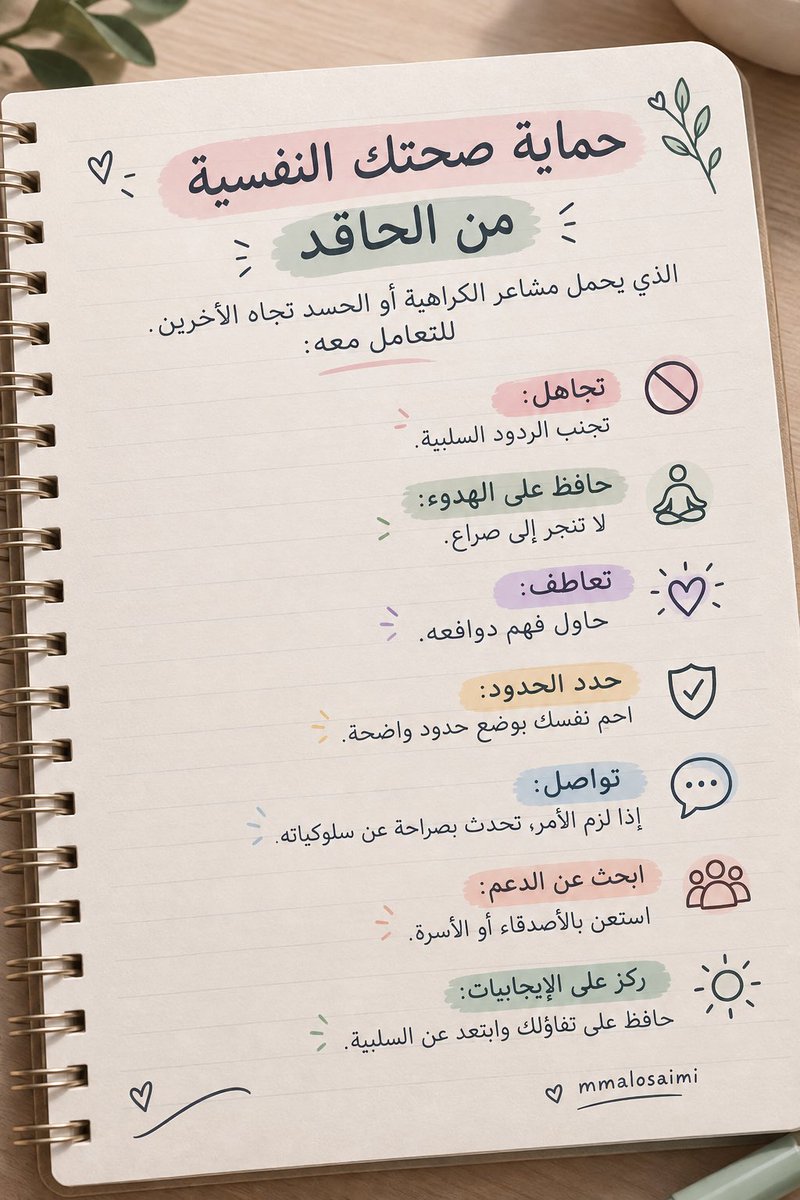 حماية صحتك النفسية
من الحاقد
الذي يحمل مشاعر الكراهية أو الحسد تجاه الأخرين.
للتعامل معه:
تجاهل:
تجنب الردود السلبية.
حافظ على الهدوء:
لا تنجر إلى صراع.
تعاطف:
حاول فهم دوافعه.
حدد الحدود:
احم نفسك بوضع حدود واضحة.
تواصل:
إذا لزم الأمر، تحدث بصراحة عن سلوكياته.
ابحث عن الدعم:
استعن بالأصدقاء أو الأسرة.
ركز على الإيجابيات:
حافظ على تفاؤلك وابتعد عن السلبية.
mmalosaimi